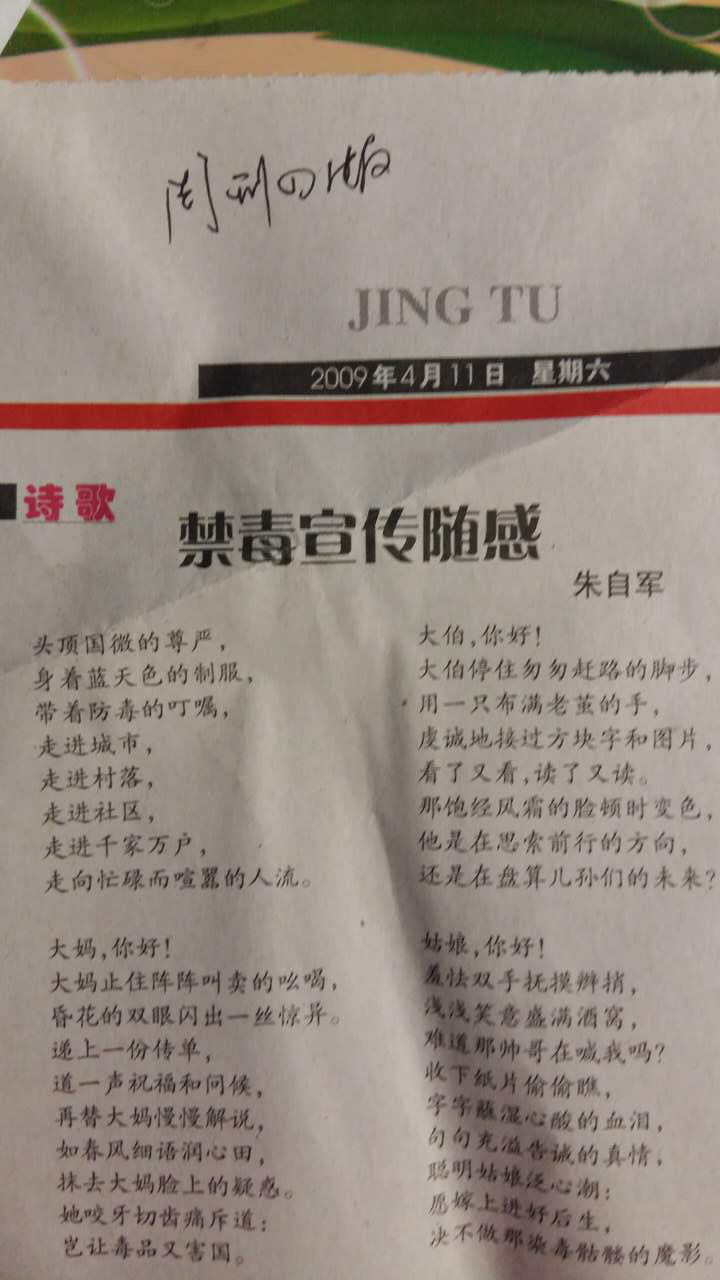 周刊の版
JING TU
2009年4月11日 星期六
诗歌
禁毒宣传随感
朱自军
头顶国微的尊严，
身着蓝天色的制服，
带着防毒的叮嘱，
走进城市，
走进村落，
走进社区，
走进千家万户，
走向忙碌而喧嚣的人流。
大妈，你好！
大妈止住阵阵叫卖的吆喝，
昏花的双眼闪出一丝惊异。
递上一份传单，
道一声祝福和问候，
再替大妈慢慢解说，
如春风细语润心田，
抹去大妈脸上的疑惑。
她咬牙切齿痛斥道：
岂让毒品又害国。
大伯，你好！
大伯停住匆匆赶路的脚步，
用一只布满老茧的手，
虔诚地接过方块字和图片，
看了又看，读了又读。
那饱经风霜的脸顿时变色，
他是在思索前行的方向，
还是在盘算儿孙们的未来？
姑娘，你好！
羞怯双手抚摸辫捎，
浅浅笑意盛满酒窝，
难道那帅哥在喊我吗？
收下纸片偷偷瞧，
字字蘸湿心酸的血泪，
句句充溢告诫的真情，
聪明姑娘泛心潮：
愿嫁上进好后生，
决不做那染毒骷髅的魔影。